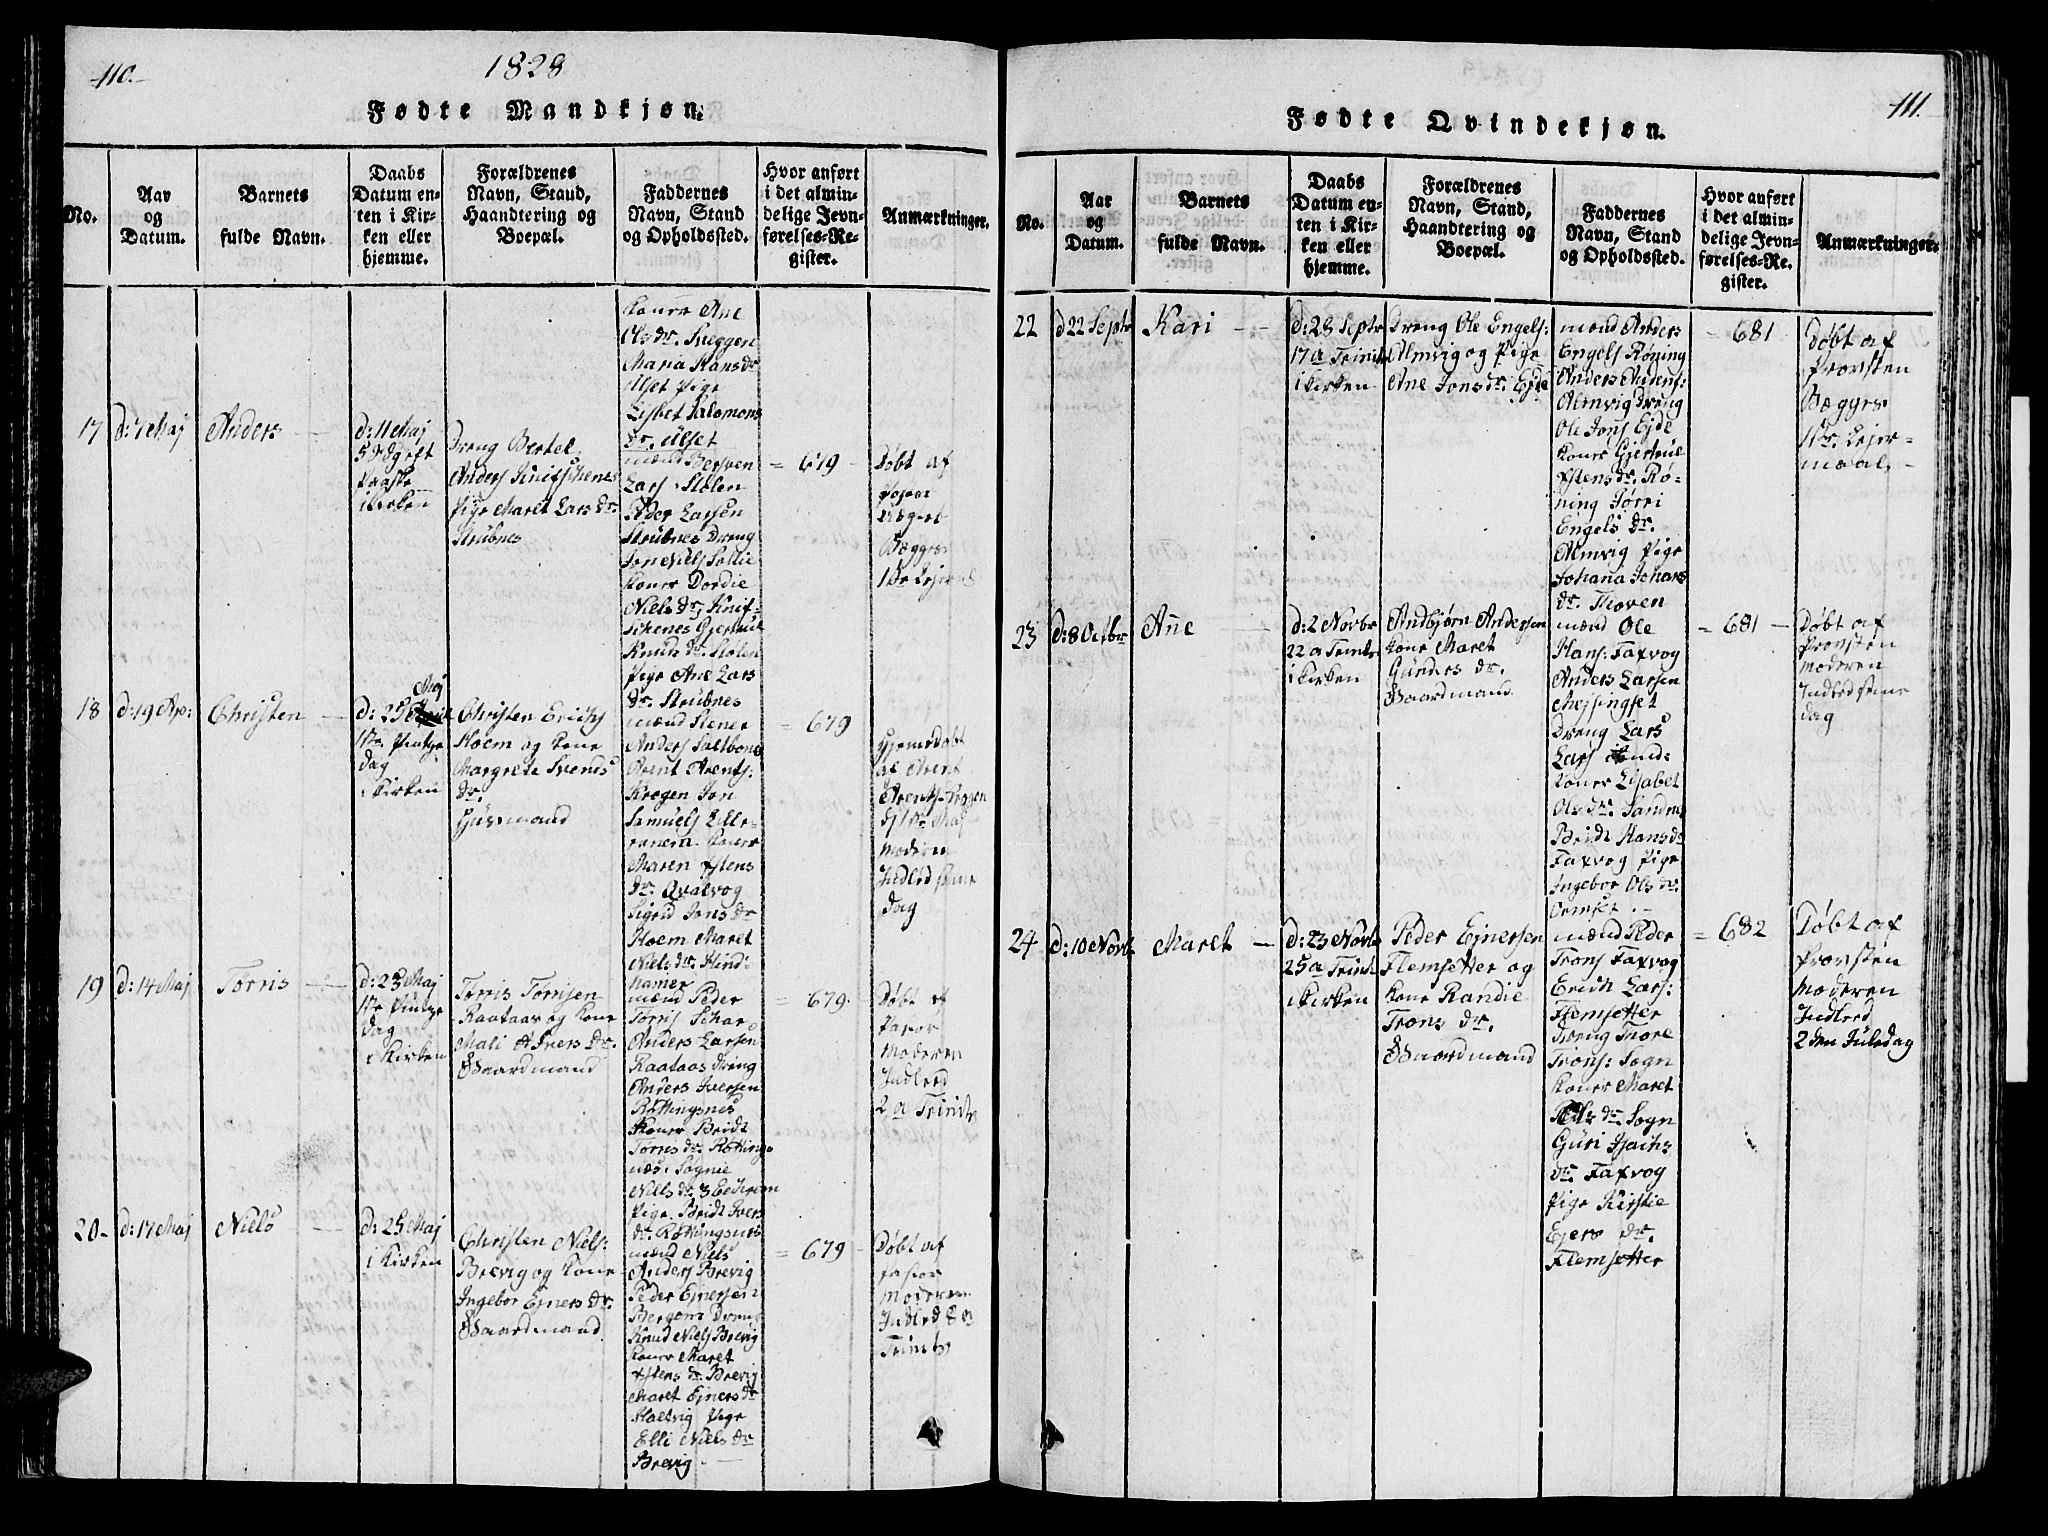 110.
1828
Fødte Mandkjøn.
No.
Aar
og
Datum.
Barnets
fulde Navn.
Daabs
Datum en-
ten i Kir-
ken eller
hjemme.
Forældrenes
Navn, Stand,
Haandtering og
Boepæl.
Faddernes
Navn, Stand
og Opholdssted.
Hvor anført
i det almin-
delige Jevn-
førelses-Re-
gister.
Anmærkninger.
Koner Ane
Ols dr.
Maria Hans dr
Ulset Pige
Lisbet Salomons
dr. Ulset
17
d: 7 Maj
Anders
d: 11 Maj
5 Sdg eft
Paaske
i Kirken
Dreng Bertel
Anders
Pige Maret Lars dr.
Strubnes
mænd Bersven
Lars Stolen
Peder Larsen
Strubnes Dreng
Jon Niels Sollie
Koner Dordie
Niels dr. Knif-
Schenes Gjertrul
Knuds dr. Stolen
Pige Ane Lars
dr. Strubnes
= 679 -
Døbt af
Begges
1ste Lejerm
18
d: 19 Ap:
Christen
d: 25 Maj
1ste Pintze
dag
i Kirken
Christen Erichs
Hoem og Kone
Margrete Svends
dr.
Husmand
mænd Stener
Anders Saltbones
Arent Arents:
Krogen Jon
Samuels Lille-
Koner
Maren Estens
dr. Qvalvog
Sigrid Jons dr
Hoem Maret
Niels dr. Hind-
hamer
= 679
Hjemedøbt
af Arent
Arents. Krogen
Moderen
Indled samme
dag
19
d: 14 Maj
Torris
d: 25 Maj
1ste Pintze
dag
i Kirken
Torris Torrisen
Raataas og Kone
Mali Ivers dr.
Gaardmand
mænd Peder
Torris Schar
Anders Larsen
Raataas Dreng
Anders Iversen
Røttingsnes
Koner Bridt
Torris dr. Røttings-
nes. Sognie
Niels dr.
Pige. Bridt Ivers
dr. Røttingsnes
= 679.
Døbt af
Pastor
Moderen
Indled
2 a Trinit
20-
d: 17 Maj
Niels
d: 25 Maj
i Kirken
Christen Niels:
Brevig og Kone
Ingebor Ejners dr.
Gaardmand
mænd Niels
Anders Brevig
Peder Ejnersen
Bergem Dreng
Knud Niels Brevig
Koner Maret
Estens dr. Brevig
Maret Ejners dr
Holtvig Pige
Elli Niels dr
Brevig.
= 679 -
Døbt af
Pastor
Moderen
Indled
Trinit
111.
Fødte Qvindekjøn.
No.
Aar
og
Datum.
Barnets
fulde Navn.
Daabs
Datum en-
ten i Kir-
ken eller
hjemme.
Forældrenes
Navn, Stand,
Haandtering og
Boepæl.
Faddernes
Navn, Stand
og Opholdssted.
Hvor anført
i det almin-
delige Jevn-
førelses-Re-
gister.
Anmærkninger.
22
d 22 Septr
Kari
d: 28 Septr
17 a Trinit
i Kirken
Dreng Ole Engels:
Almvig og Pige
Ane Jons dr. Ejde
mænd Anders
Engels Røning
Anders Andens:
Almvig Dreng
Ole Jons Ejde
Koner Gjertrul
Estens dr. Rø-
ning Torri
Engels dr.
Almvig Pige
Johana Johans
dr. Hoven
- 681
Døbt af
Provsten
Begges
1ste Lejer-
maal
23
d: 8 Octbr
Ane
d: 2 Novbr
22 a Trinit
i Kirken
Andbjørn Andersen
Kone Maret
Gunders dr.
Gaardmand
mænd Ole
Hans: Faxvog
Anders Larsen
Mejsingset
Dreng Lars
Lars
Koner Lisabet
Ols dr. Sandnes
Bridt Hans dr
Faxvog Pige
Ingebor Ols dr.
Ormset.
= 681 -
Døbt af
Provsten
Moderen
Indled samme
dag
24
d: 10 Novb
Maret
d: 23 Novb
25 a Trinit
i Kirken
Peder Ejnersen
Flemsetter og
Kone Randie
Trons dr.
Gaardmand
mænd Peder
Trons Faxvog
Erich Lars:
Flemsetter
Dreng Tore
Trons: Sogn
Koner Maret
Ols dr. Sogn
Guri Isachs
dr. Faxvog
Pige Kirstie
Ejers dr.
Flemsetter
= 682
Døbt af
Provsten
Moderen
Indled
2den Juledag